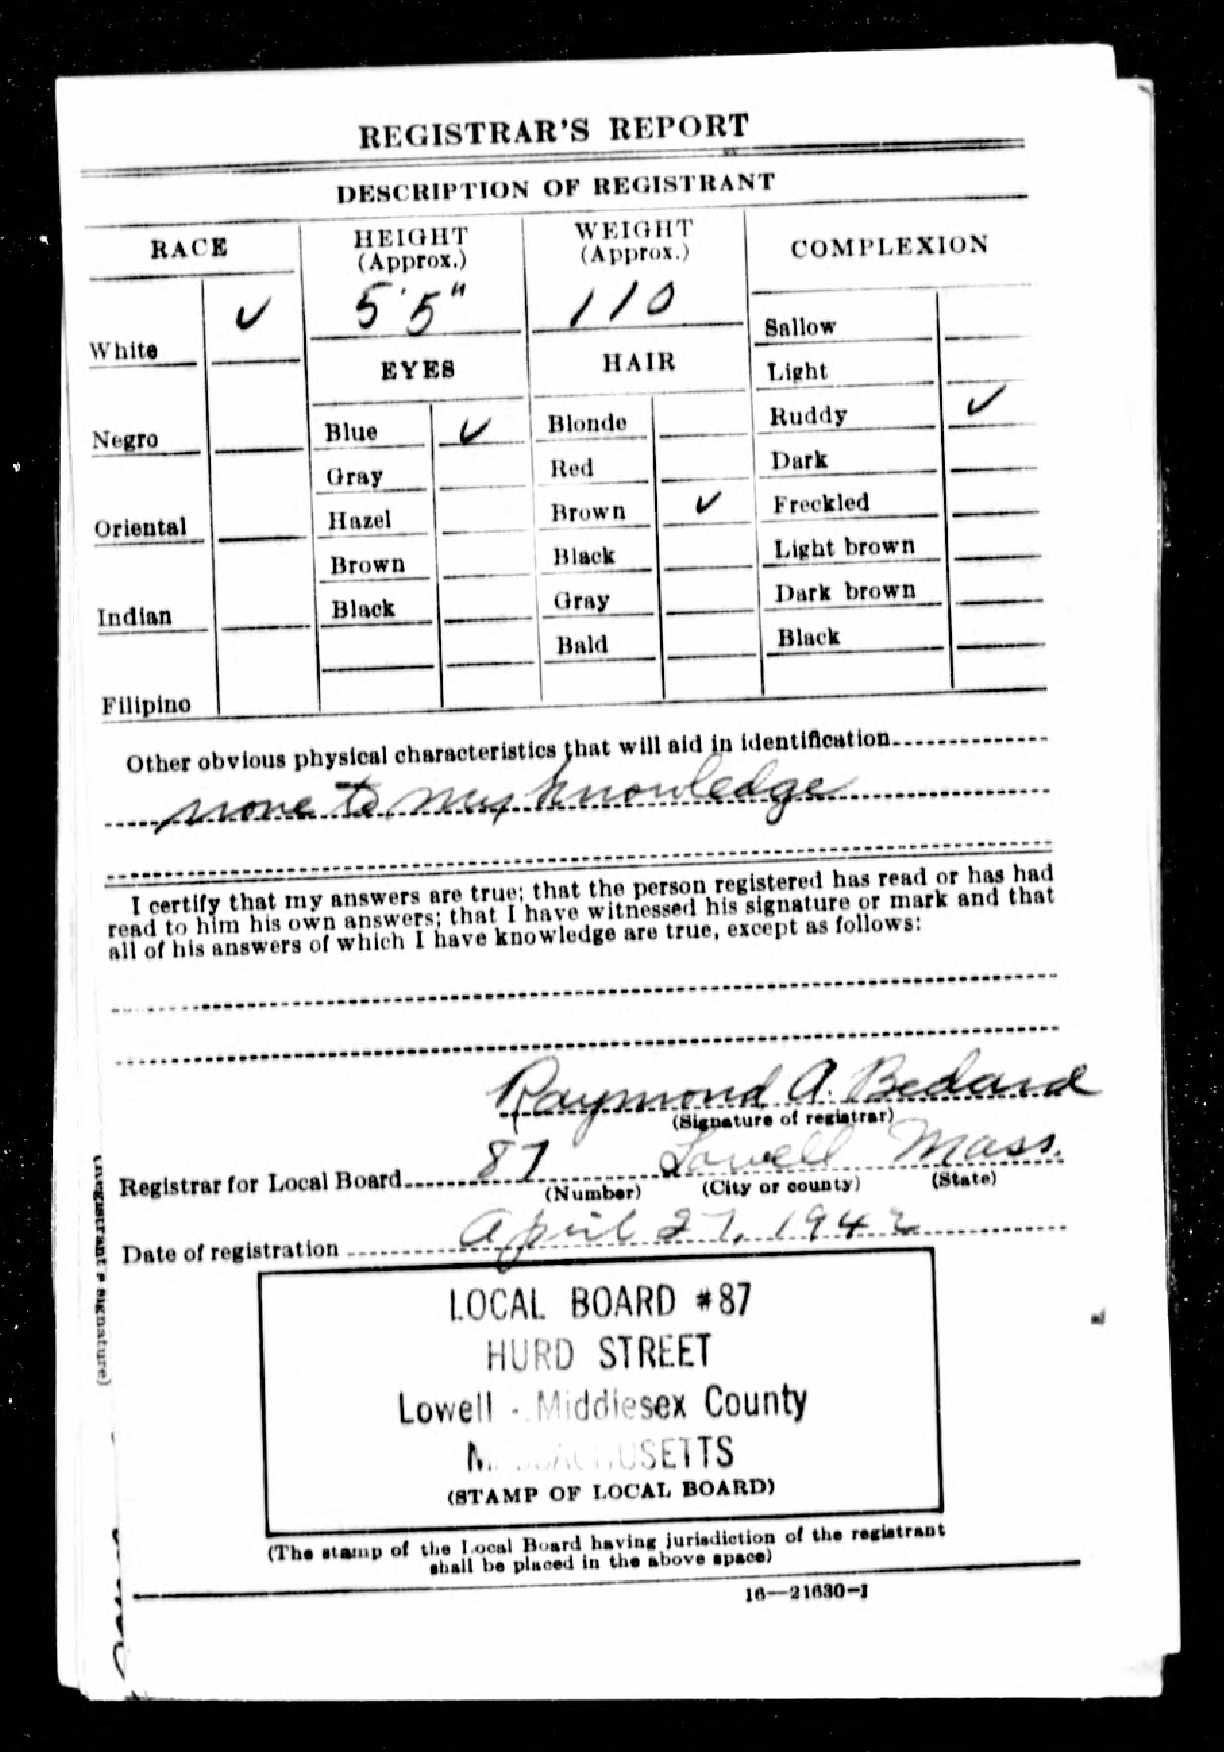 REGISTRAR'S REPORT
DESCRIPTION OF REGISTRANT
RACE
HEIGHT (Approx.)
WEIGHT (Approx.)
COMPLEXION
5'5"
110
White ✓
Negro
Oriental
Indian
Filipino
EYES
Blue ✓
Gray
Hazel
Brown
Black
HAIR
Blonde
Red
Brown ✓
Black
Gray
Bald
Sallow
Light
Ruddy ✓
Dark
Freckled
Light brown
Dark brown
Black
Other obvious physical characteristics that will aid in identification
none to my knowledge
I certify that my answers are true; that the person registered has read or has had
read to him his own answers; that I have witnessed his signature or mark and that
all of his answers of which I have knowledge are true, except as follows:
Raymond A. Bedard
(Signature of registrar)
Registrar for Local Board 87 Lowell Mass.
(Number) (City or county) (State)
Date of registration April 27, 1942
LOCAL BOARD #87
HURD STREET
Lowell - Middlesex County
MASSACHUSETTS
(STAMP OF LOCAL BOARD)
(The stamp of the Local Board having jurisdiction of the registrant
shall be placed in the above space)
16—21630-1
(Registrant's signature)